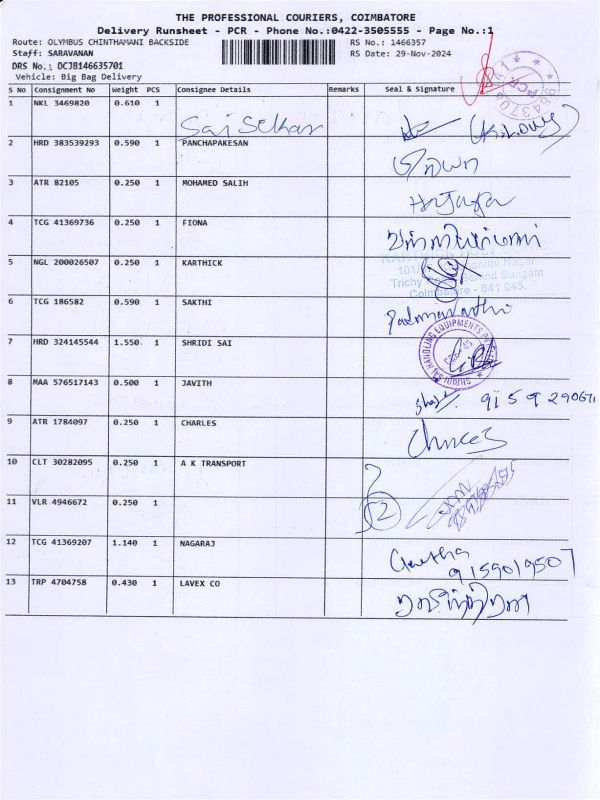 THE PROFESSIONAL COURIERS, COIMBATORE
Delivery Runsheet - PCR - Phone No.:0422-3505555 - Page No.:1
Route: OLYMBUS CHINTHAMANI BACKSIDE RS No.: 1466357
Staff: SARAVANAN RS Date: 29-Nov-2024
DRS No.: DCJ8146635701
Vehicle: Big Bag Delivery
S No Consignment No Weight PCS Consignee Details Remarks Seal & Signature
1 NKL 3469820 0.610 1
Sai Sekhar
2 HRD 383539293 0.590 1 PANCHAPAKESAN
3 ATR 82105 0.250 1 MOHAMED SALIH
4 TCG 41369736 0.250 1 FIONA
5 NGL 200026507 0.250 1 KARTHICK
Coimbatore - 641 045.
6 TCG 186582 0.590 1 SAKTHI
7 HRD 324145544 1.550 1 SHRIDI SAI
8 MAA 576517143 0.500 1 JAVITH
9 ATR 1784097 0.250 1 CHARLES
10 CLT 30282095 0.250 1 A K TRANSPORT
11 VLR 4946672 0.250 1
12 TCG 41369207 1.140 1 NAGARAJ
9159019507
13 TRP 4704758 0.430 1 LAVEX CO